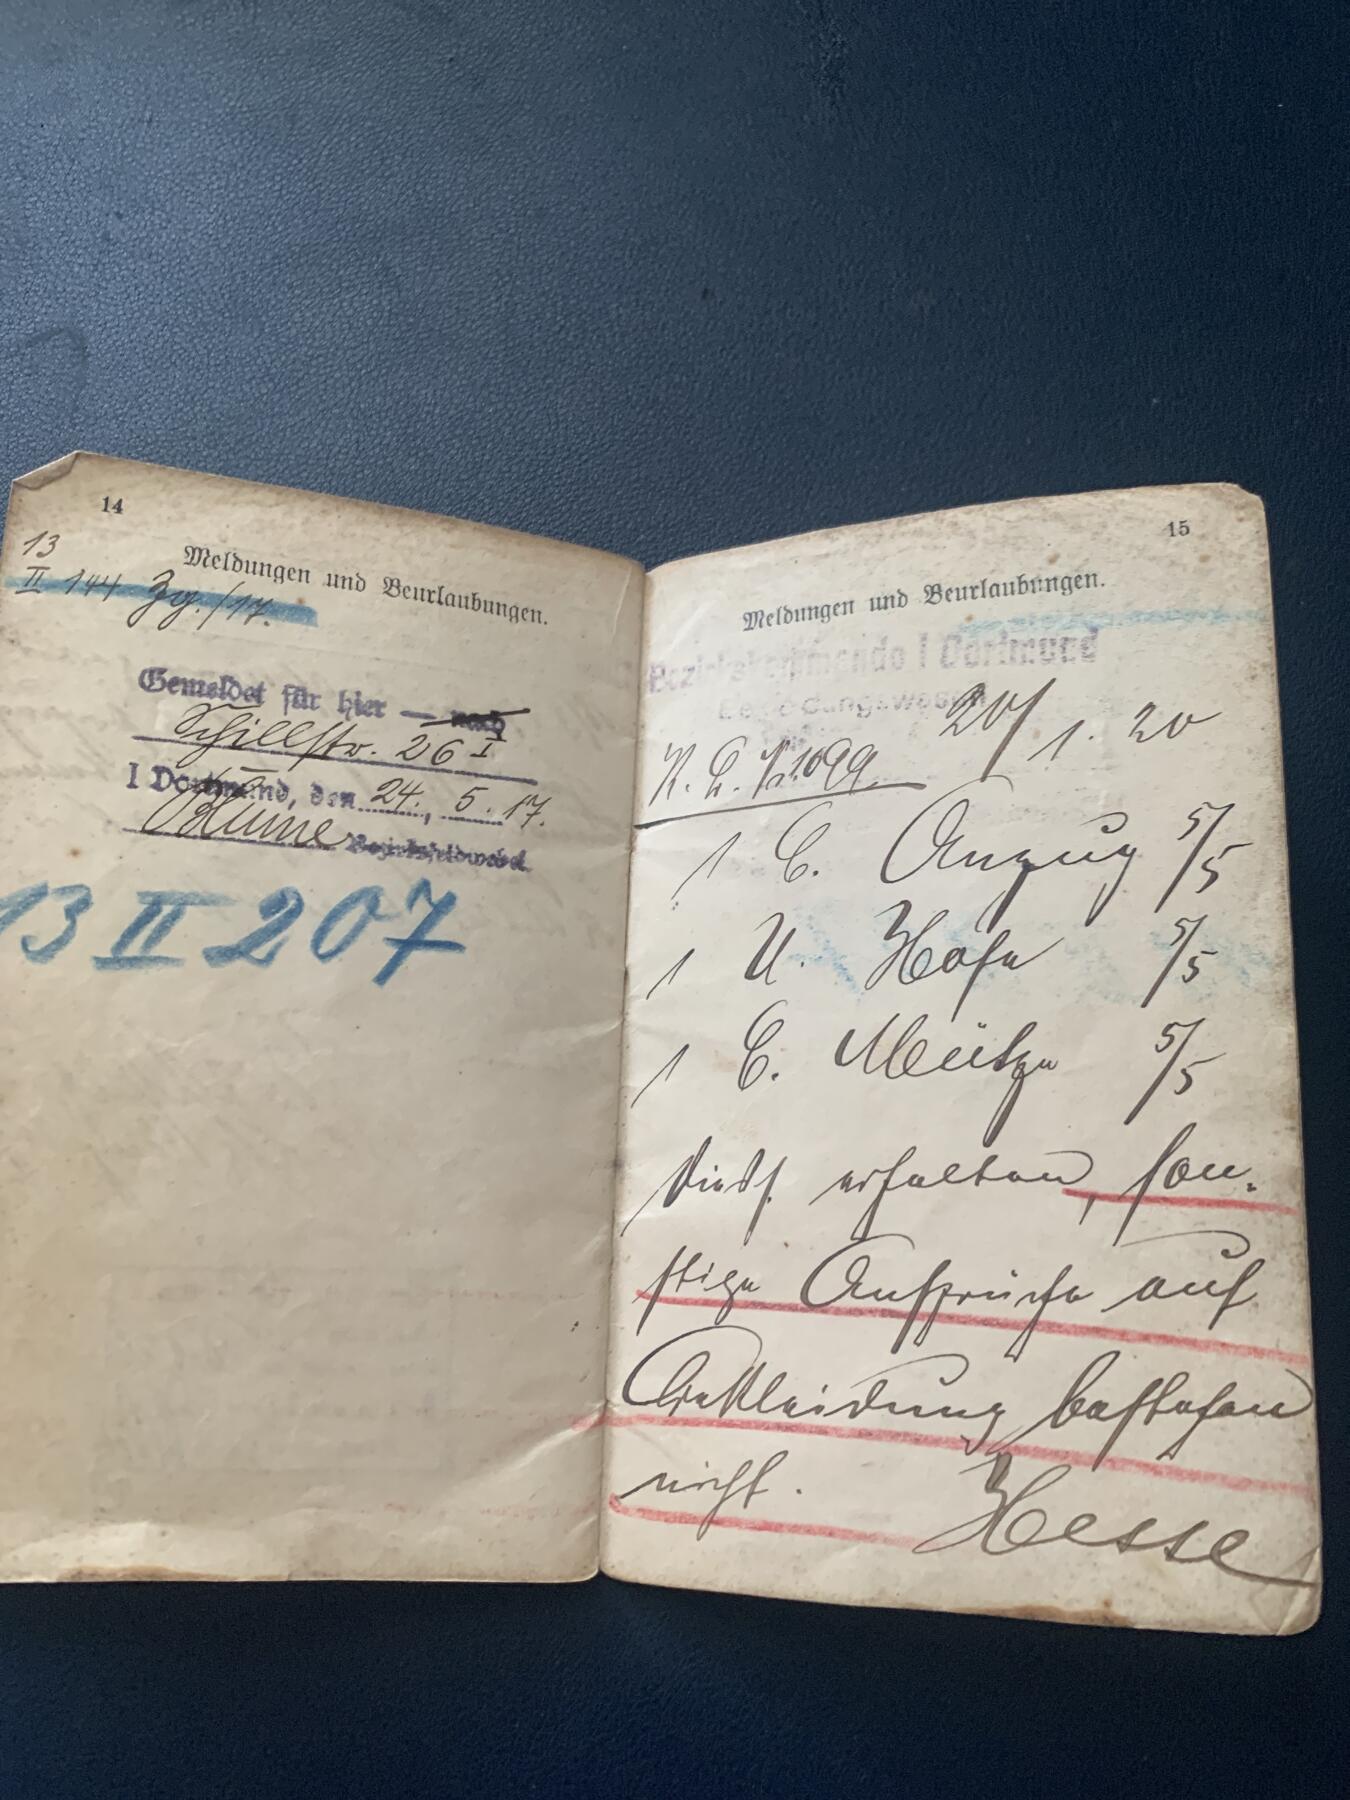 14
13
II 144 Zg./17.
Meldungen und Beurlaubungen.
Gemeldet für hier — nach
Schillstr. 26 I
I Dortmund, den 24. 5. 17.
Blume Bezirksfeldwebel
13 II 207
15
Meldungen und Beurlaubungen.
Bezirkskommando I Dortmund
20/1. 20
K. L. N. 1099
1 C. Anzug 5/5
1 U. Hose 5/5
1 C. Mütze 5/5
erhalten, son-
stige Ansprüche auf
Einkleidung bestehen
nicht. Hesse